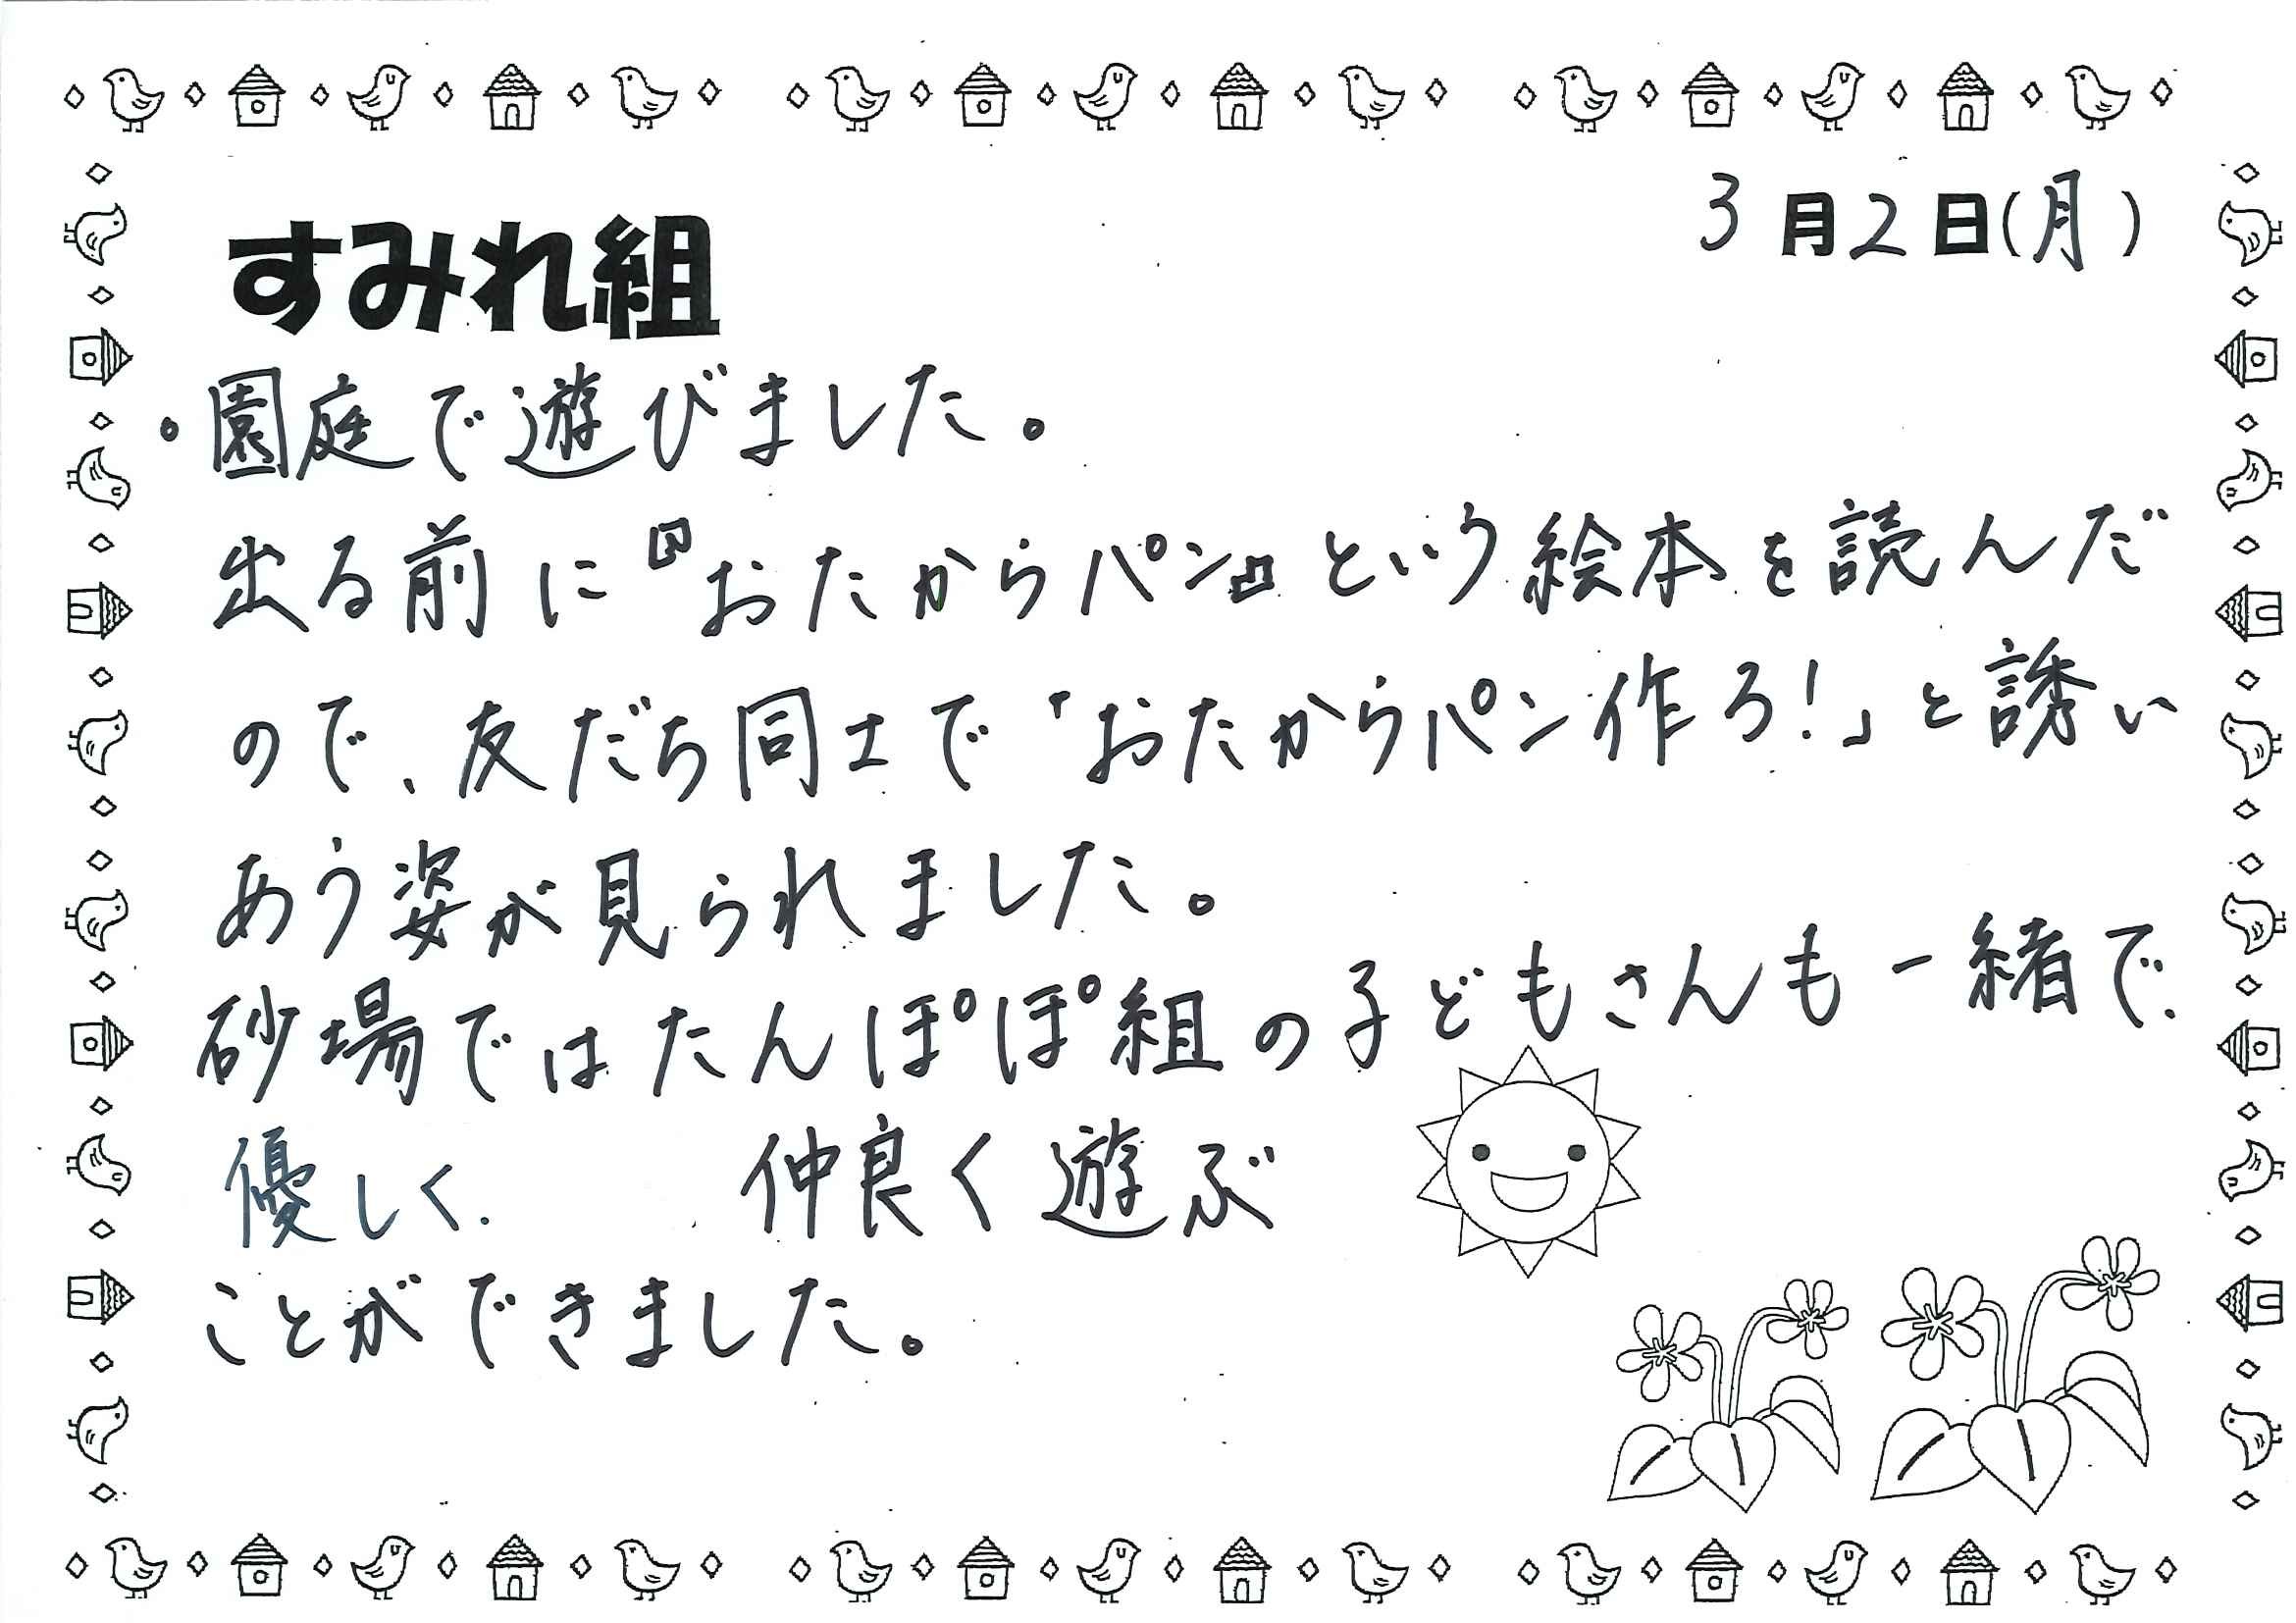 3月2日(月)
すみれ組
。園庭で遊びました。
出る前に『おたからパン』という絵本を読んだ
ので、友だち同士で「おたからパン作ろ!」と誘い
あう姿が見られました。
砂場ではたんぽぽ組の子どもさんも一緒で、
優しく、仲良く遊ぶ
ことができました。